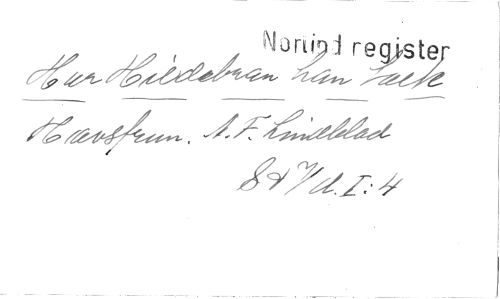 Norlind register
Hur Hildebran han lock
Havsfrun. A. F. Lindblad
St 7/d. I: 4